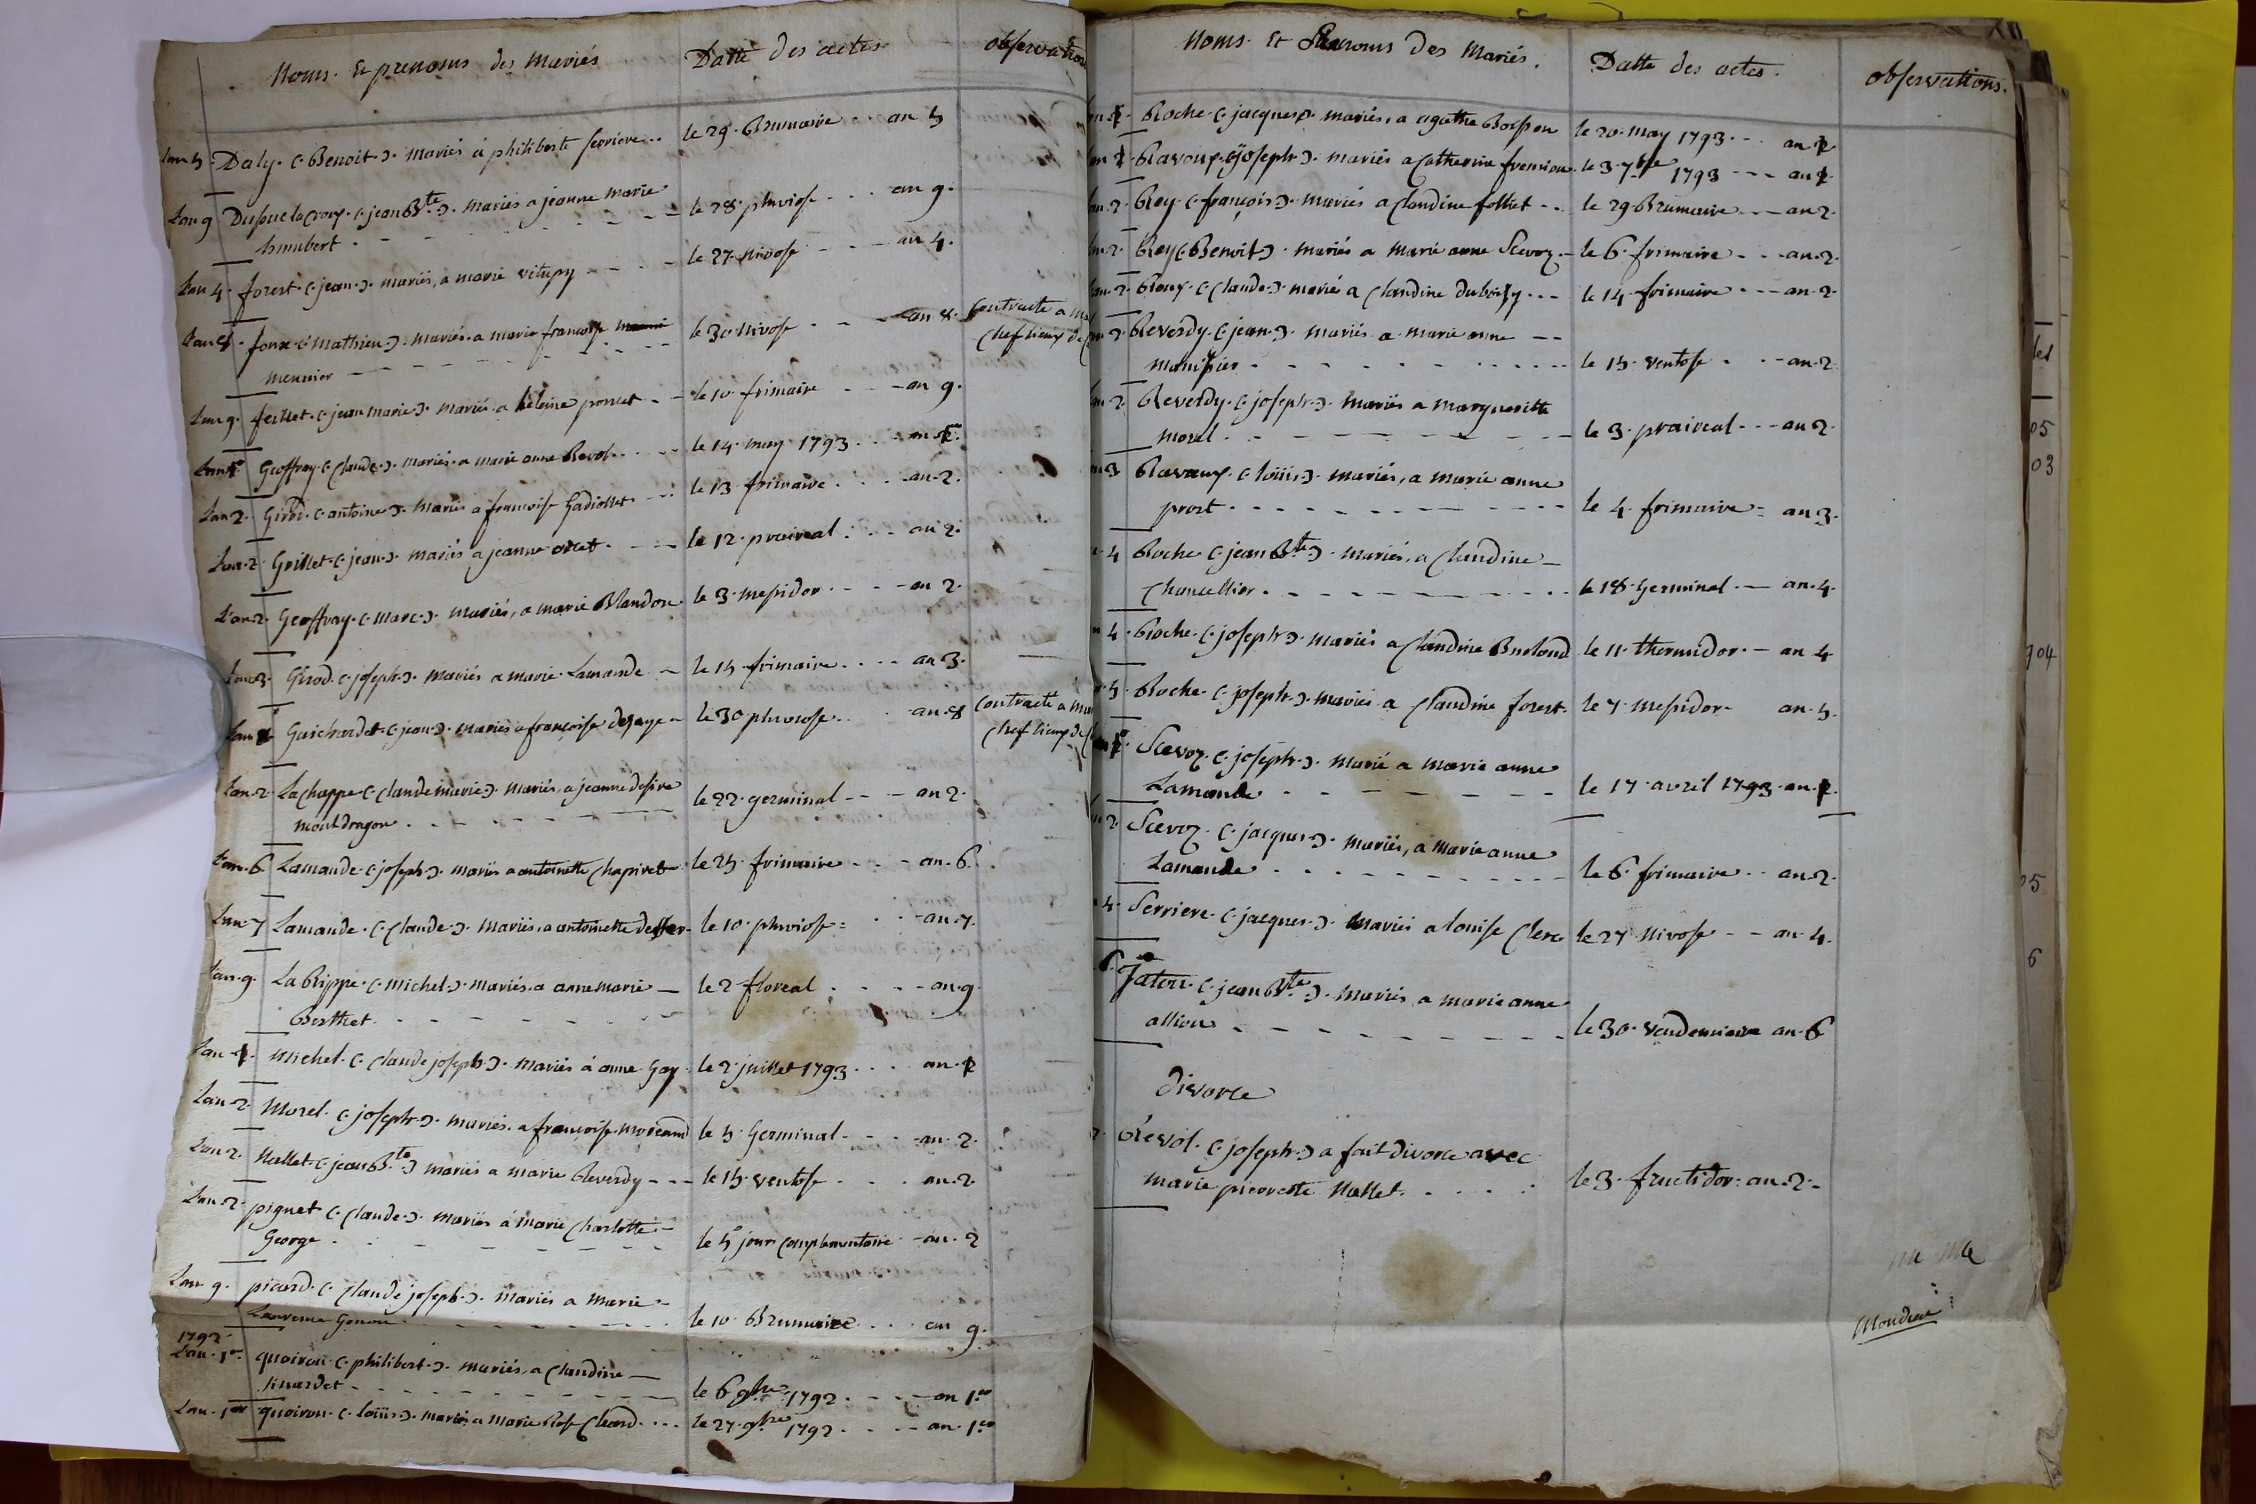 Noms. Et prenoms des mariés Datte des actes observations
Lan 5. Daly. (. Benoit.). mariés á philiberte ferriere.. le 29. Brumaire. . an 5
Lan 9 (. jean Bte.). mariés a jeanne marie
humbert. le 28. pluviose. . . an 9.
Lan 4. forest. (. jean.). mariés, a marie vitupy le 27. Nivose an 4.
Lan 8. (. Mathieu.). mariés. a marie francoise
meunier le 30 Nivose. an 8. Contracte a
Chef lieux de
Lan 9. (. jean marie.). mariés. a heleine poncet le 10. frimaire an 9.
Geoffray. (. Claude.). mariés. a marie anne Revol le 14. may. 1793
Lan 2. Girod. (. antoine.). mariés a francoise Gadiollet le 13. frimaire. an. 2.
Lan. 2. Grillet. (. jean.). mariés a jeanne le 12. praireal. an 2.
Lan 2. Geoffray. (. Marc.). mariés, a marie Blandon le 3. messidor an 2.
Lan 3. Girod. (. joseph.). mariés a marie. Lamande le 15. frimaire. an 3.
Guichardet. (. jean.). mariés a françoise desaye le 30 pluviose. an. 8 Contracte a
Chef lieux de
Lan. 2. Lachappe. (. Claude marie.). mariés, a jeanne desire
montdragon. le 22. germinal an 2.
Lan. 6 Lamande. (. joseph.). mariés a antoinette Chapiret le 25 frimaire an. 6.
Lan. 7 Lamande. (. Claude.). mariés. a antoinette le 10. pluviose an. 7.
Lan. 9. La Rippe. (. michel.). mariés. a anne marie
Berthet. le 2 floreal an. 9
Michel. (. Claude joseph.). mariés á anne Gay le 2. juillet 1793. an.
Lan. 2. Morel. (. joseph.). mariés. a françoise le 5. Germinal. an. 2.
Lan 2. Mallet. (. jean Bte.) mariés a marie Reverdy le 15. ventose. an. 2.
Lan. 2. piquet (. Claude.). mariés á marie Charlotte
George. le 5e jour complementaire an. 2
Lan 9. picard. (. Claude joseph.). mariés a marie
le 10. Brumaire. an 9.
1792.
Lan. 1er quoiron. (. philibert.). mariés, a Claudine
le 6 9bre 1792. an 1er
Lan. 1er quoiron. (. loüis.). mariés a marie Rose le 27. 9bre 1792. an. 1er
Noms. Et Prenoms des Mariés. Datte des actes. observations.
Roche. (. jacques.). mariés. a agathe le 20. may 1793. an
(. joseph.). mariés a Catherine le 3 7bre 1793 an
an. 2. Rey. (. françois.). mariés a Claudine folliet le 29 Brumaire an 2.
an. 2. Rey (. Benoit.). mariés a marie anne Scevoz le 6. frimaire an. 2.
an. 2. Roux. (. Claude.). mariés a Claudine le 14. frimaire an. 2.
an. 2. Reverdy. (. jean.). mariés. a marie anne
le 15. ventose an. 2.
an. 2. Reverdy. (. joseph.). mariés a marguerite
morel. le 3. praireal an 2.
an 3 Ravaux. (. loüis.). mariés, a marie anne
prost. le 4. frimaire an 3.
4 Roche. (. jean Bte.). mariés, a Claudine
Chancellier. le 18. Germinal. an. 4.
4. Roche. (. joseph.). mariés a Claudine le 11. thermidor. an 4
5. Roche. (. joseph.). mariés a Claudine forest. le 7. messidor an. 5.
Scevoz. (. joseph.). marié a marie anne
Lamande le 17. avril 1793. an.
2. Scevoz. (. jacques.). mariés, a marie anne
Lamande le 6. frimaire an. 2.
4. Serriere. (. jacques.). mariés a louise Clerc le 27 Nivose an. 4.
6. (. jean Bte.). mariés, a marie anne
allion le 30. vendemiaire an. 6
divorce
2. Révol. (. joseph.) a fait divorce avec
marie pierrette Mallet. le 3. fructidor. an. 2.
05
03
904
05
6